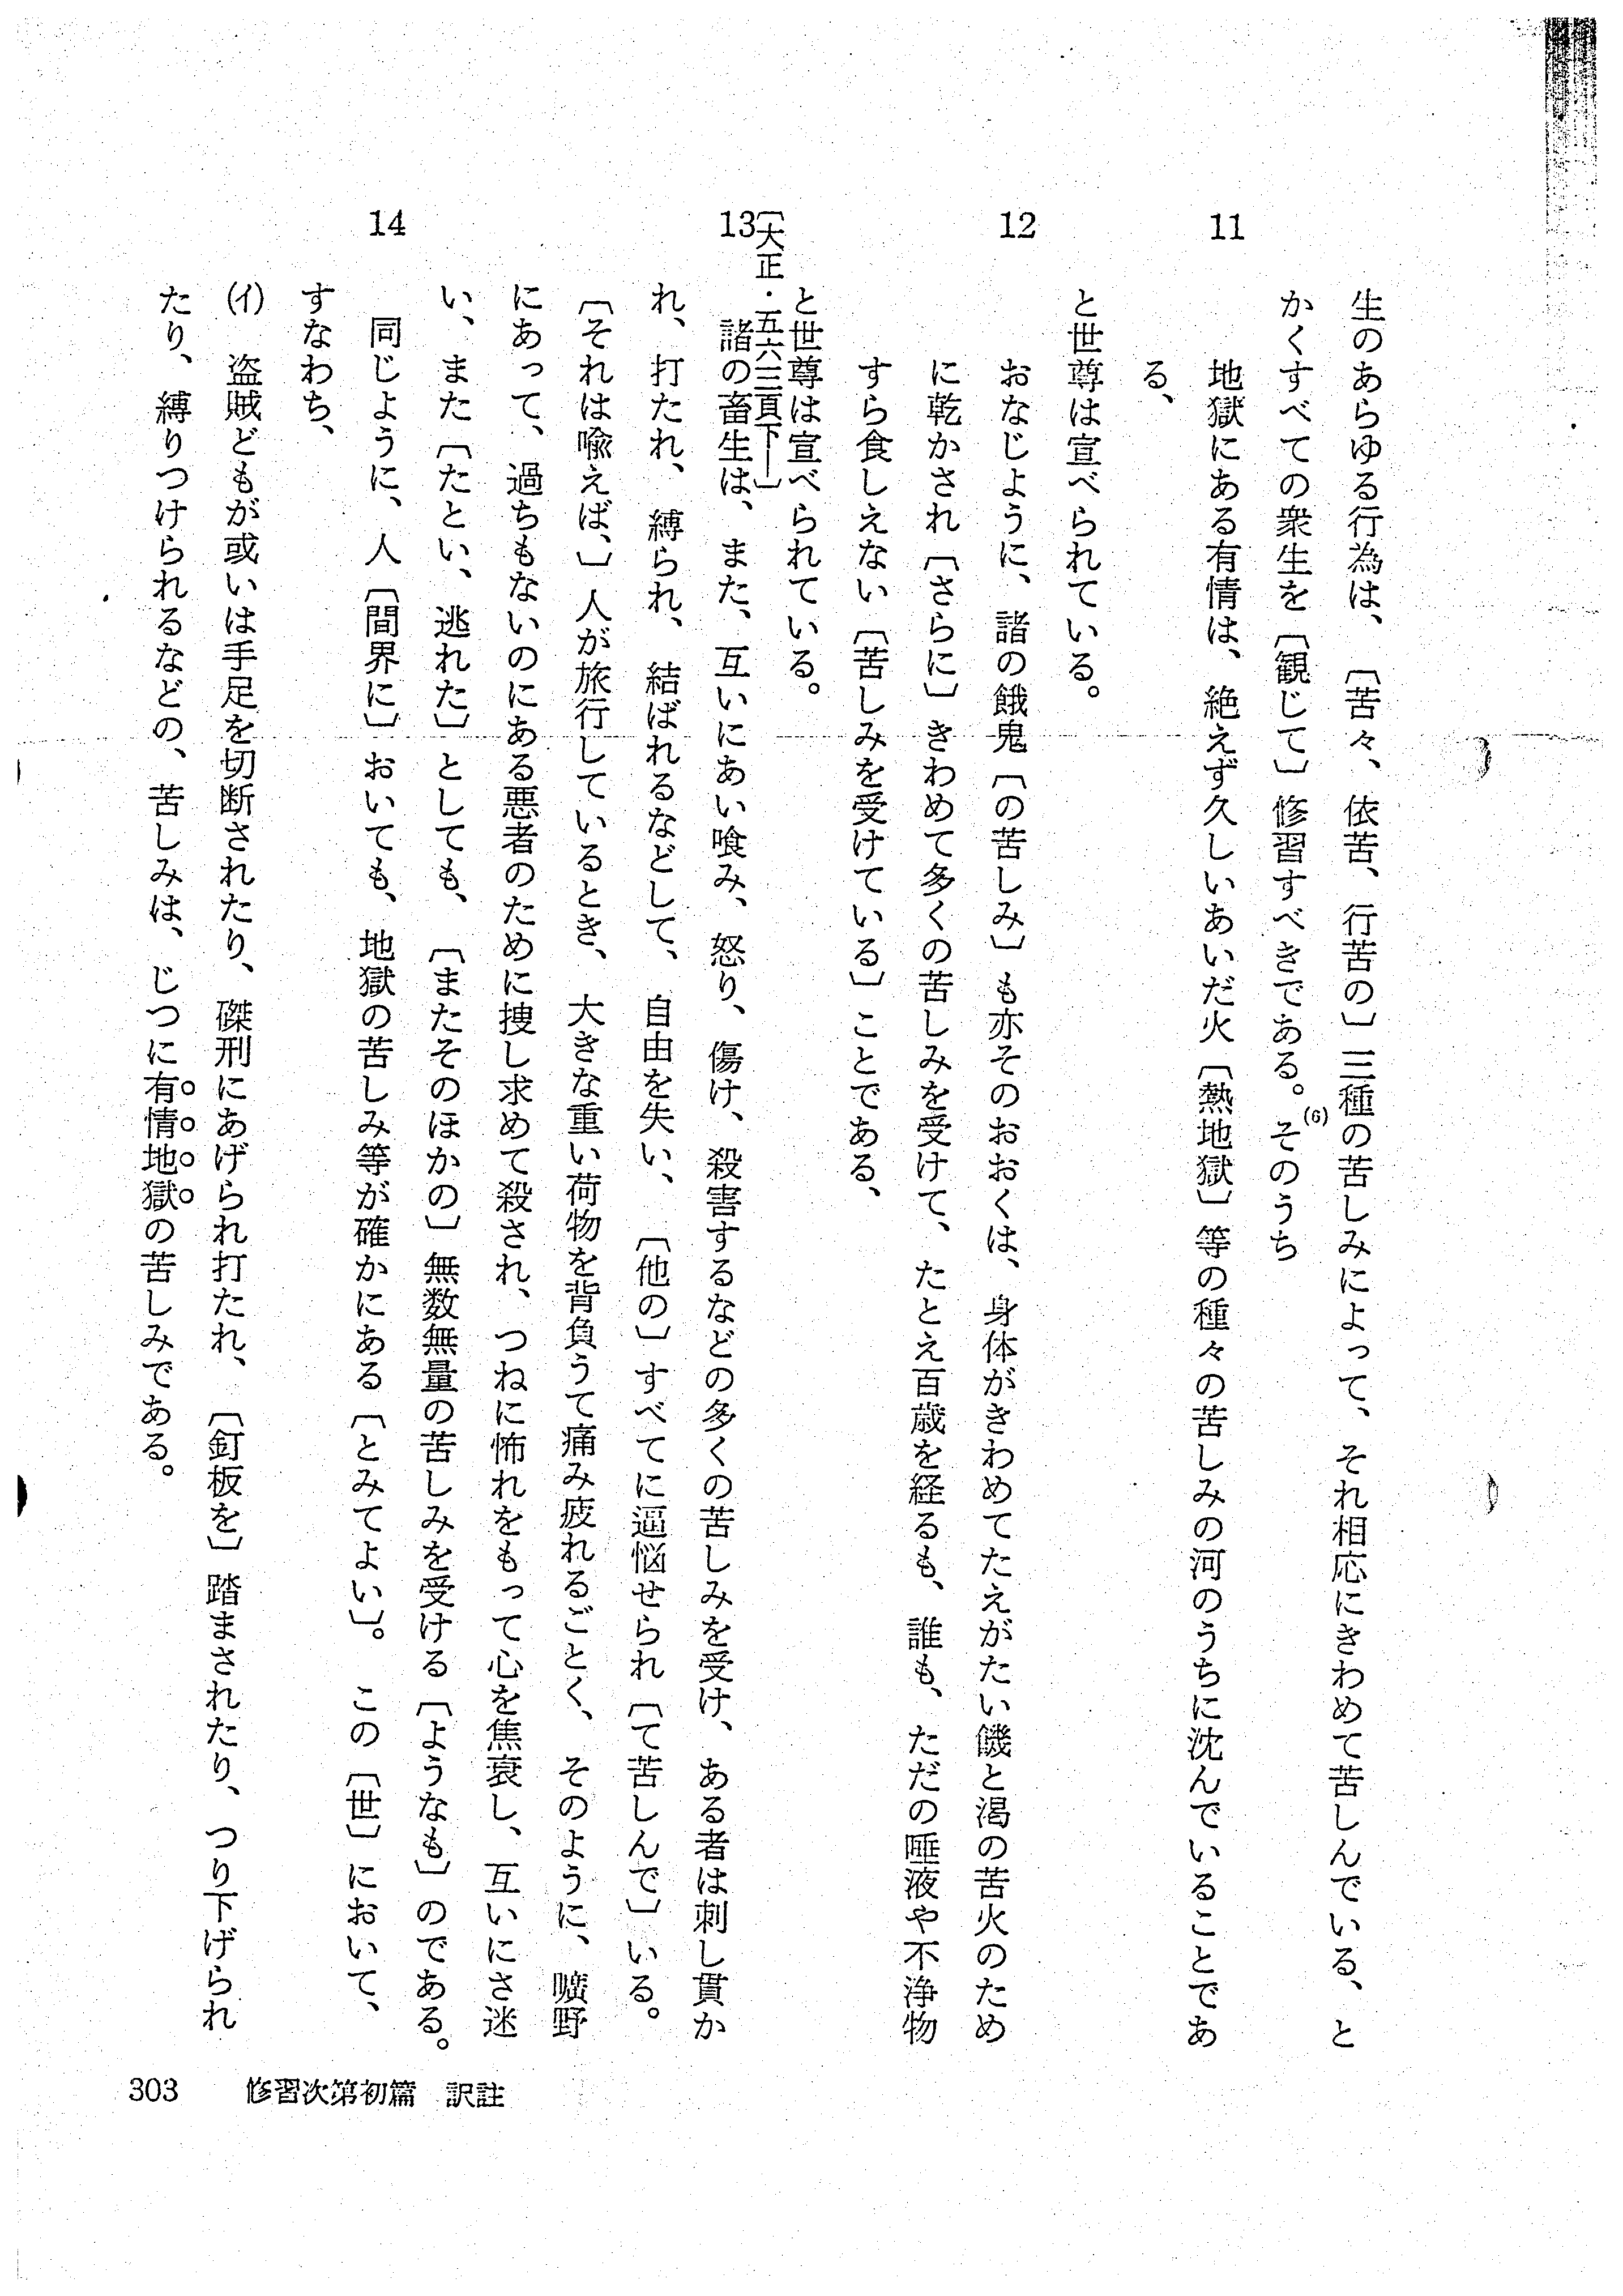 生のあらゆる行為は、〔苦々、依苦、行苦の〕三種の苦しみによって、それ相応にきわめて苦しんでいる、と
かくすべての衆生を〔観じて〕修習すべきである。(6)そのうち
11
地獄にある有情は、絶えず久しいあいだ火〔熱地獄〕等の種々の苦しみの河のうちに沈んでいることであ
る、
と世尊は宣べられている。
12
おなじように、諸の餓鬼〔の苦しみ〕も亦そのおおくは、身体がきわめてたえがたい饑と渇の苦火のため
に乾かされ〔さらに〕きわめて多くの苦しみを受けて、たとえ百歳を経るも、誰も、ただの唾液や不浄物
すら食しえない〔苦しみを受けている〕ことである、
と世尊は宣べられている。
〔大正・五六三頁下―〕
13
諸の畜生は、また、互いにあい喰み、怒り、傷け、殺害するなどの多くの苦しみを受け、ある者は刺し貫か
れ、打たれ、縛られ、結ばれるなどして、自由を失い、〔他の〕すべてに逼悩せられ〔て苦しんで〕いる。
〔それは喩えば、〕人が旅行しているとき、大きな重い荷物を背負うて痛み疲れるごとく、そのように、曠野
にあって、過ちもないのにある悪者のために捜し求めて殺され、つねに怖れをもって心を焦衰し、互いにさ迷
い、また〔たとい、逃れた〕としても、〔またそのほかの〕無数無量の苦しみを受ける〔ようなも〕のである。
14
同じように、人〔間界に〕おいても、地獄の苦しみ等が確かにある〔とみてよい〕。この〔世〕において、
すなわち、
(イ) 盗賊どもが或いは手足を切断されたり、磔刑にあげられ打たれ、〔釘板を〕踏まされたり、つり下げられ
たり、縛りつけられるなどの、苦しみは、じつに有情地獄の苦しみである。
303 修習次第初篇 訳註